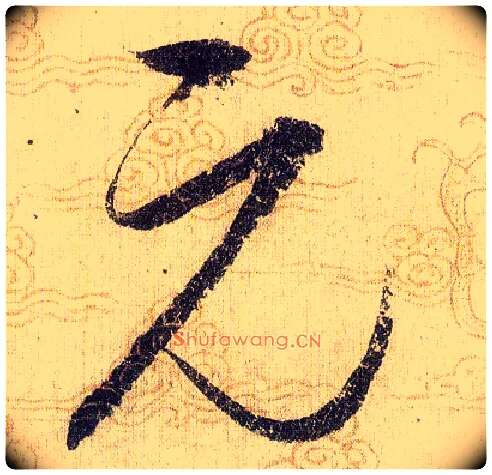 元
Shufawang.CN